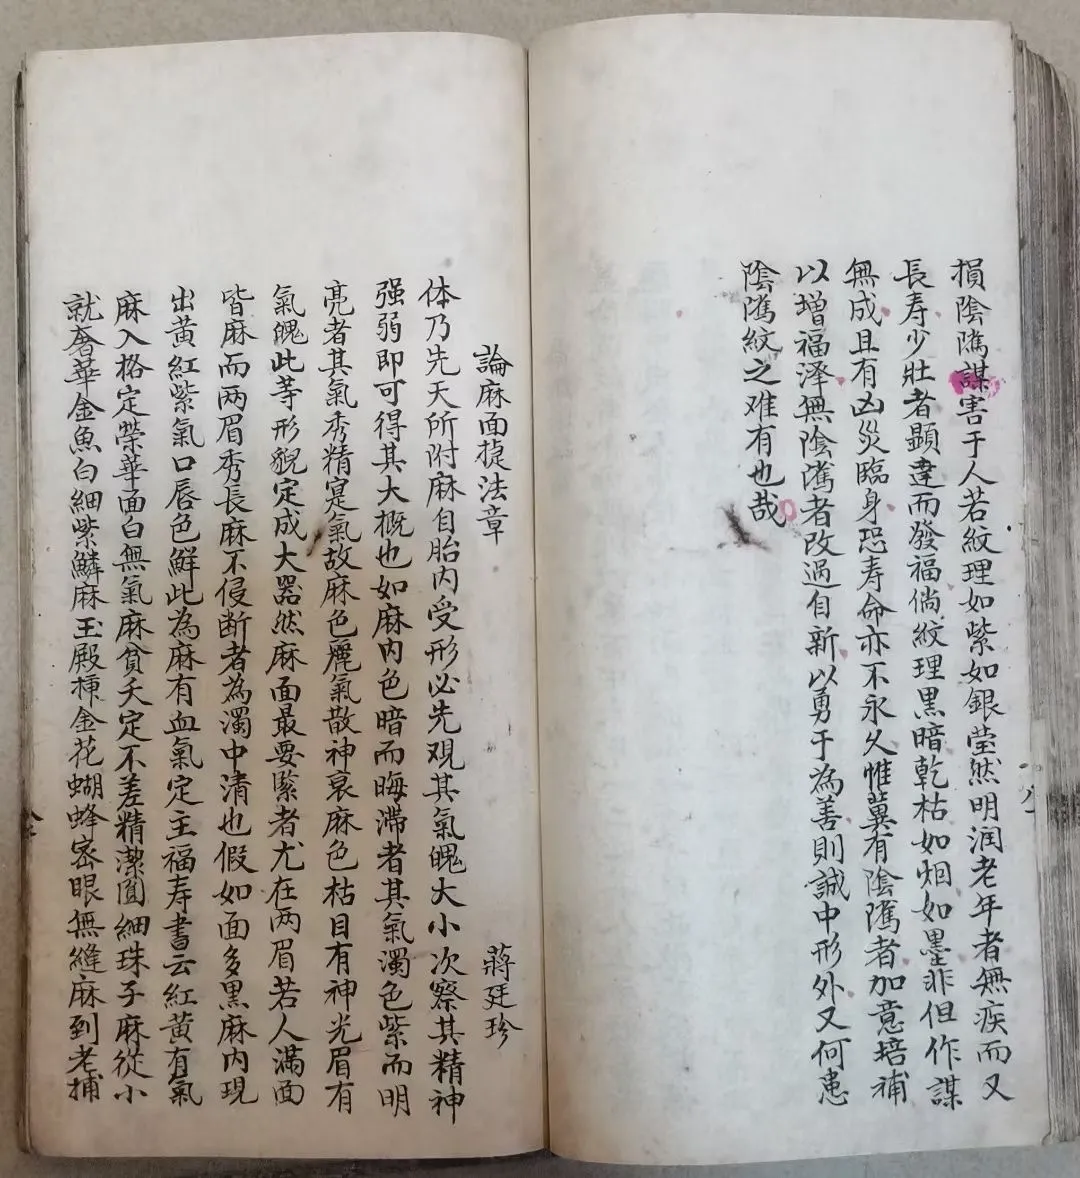 損陰隲謀害于人若紋理如紫如銀瑩然明润老年者無疾而又
長寿少壯者顕達而發福倘紋理黒暗乾枯如烟如墨非但作謀
無成且有凶災臨身恐寿命亦不永久惟冀有陰隲者加意培補
以增福泽無陰隲者改過自新以勇于為善則誠中形外又何患
陰隲紋之难有也哉
論麻面捷法章　蔣廷珍
体乃先天所附麻自胎内受形必先观其氣魄大小次察其精神
强弱即可得其大概也如麻内色暗而晦滞者其氣濁色紫而明
亮者其氣秀精寔氣故麻色麗氣散神衰麻色枯目有神光眉有
氣魄此等形貌定成大器然麻面最要緊者尤在两眉若人滿面
皆麻而两眉秀長麻不侵断者為濁中清也假如面多黒麻内現
出黄紅紫氣口唇色鮮此為麻有血氣定主福寿書云紅黄有氣
麻入格定荣華面白無氣麻貧夭定不差精潔圓細珠子麻從小
就奢華金魚白細紫鱗麻玉殿揷金花蝴蜂宻眼無縫麻到老捕